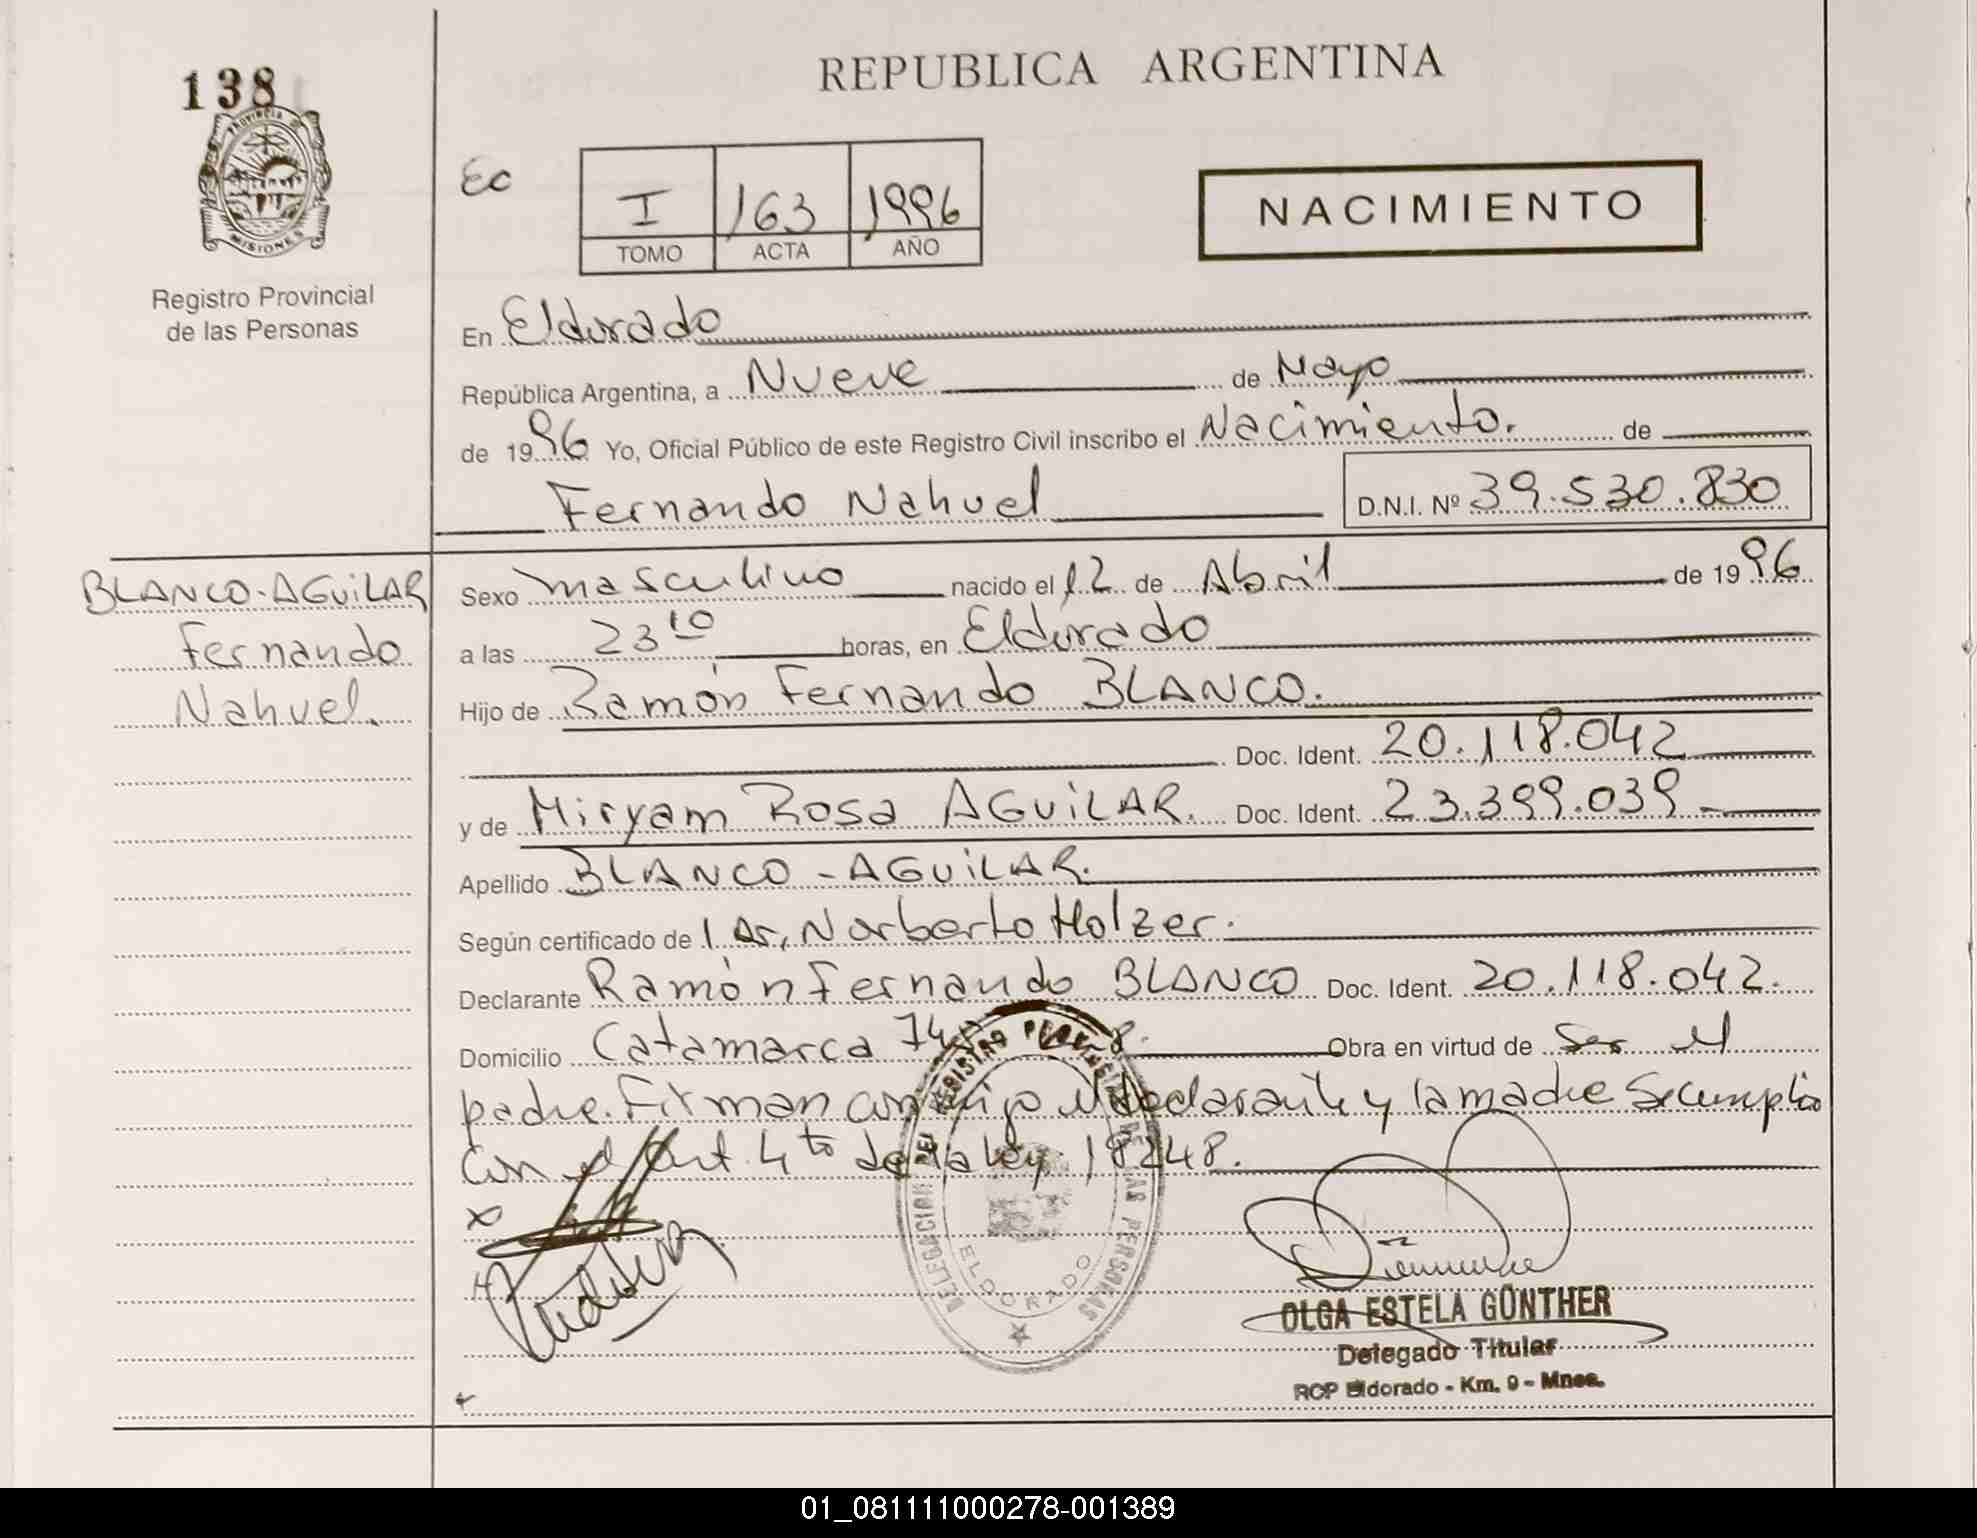 138
PROVINCIA DE
MISIONES
Registro Provincial
de las Personas
REPUBLICA ARGENTINA
Ec
I 163 1996
TOMO ACTA AÑO
NACIMIENTO
En Eldorado
República Argentina, a Nueve de Mayo
de 1996 Yo, Oficial Público de este Registro Civil inscribo el Nacimiento. de
Fernando Nahuel D.N.I. Nº 39.530.830
BLANCO-AGUiLAR
Fernando
Nahuel.
Sexo masculino nacido el 12 de Abril de 1996
a las 23 10 horas, en Eldorado
Hijo de Ramón Fernando BLANCO.
Doc. Ident. 20.118.042
y de Miryam Rosa AGUiLAR. Doc. Ident. 23.399.039.-
Apellido BLANCO - AGUiLAR.
Según certificado de Dr, Norberto Holzer.
Declarante Ramón Fernando BLANCO Doc. Ident. 20.118.042.
Domicilio Catamarca Obra en virtud de Ser el
padre. Firman conmigo el declarante y la madre Se cumplio
con el Art. 4to de la ley 18248.
DELEGACION DEL REGISTRO PROVINCIAL DE LAS PERSONAS
ELDORADO
OLGA ESTELA GÜNTHER
Delegado Titular
RCP Eldorado - Km. 9 - Mnes.
01_081111000278-001389